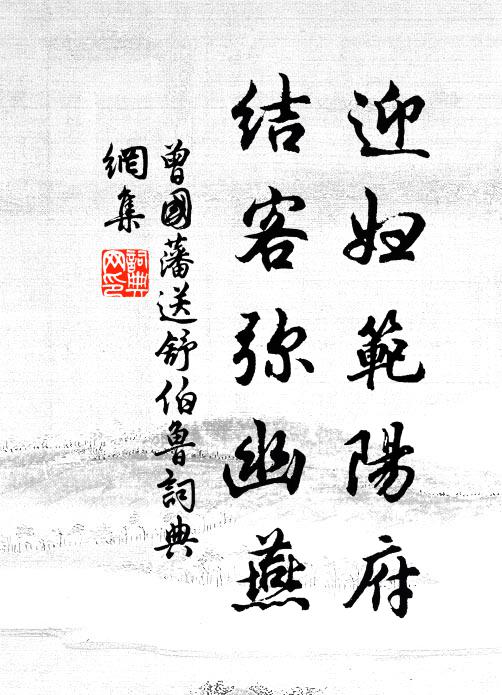 迎妇範陽府
结客弥幽燕
曾國藩送舒伯鲁詞典
網集
詞典
网印